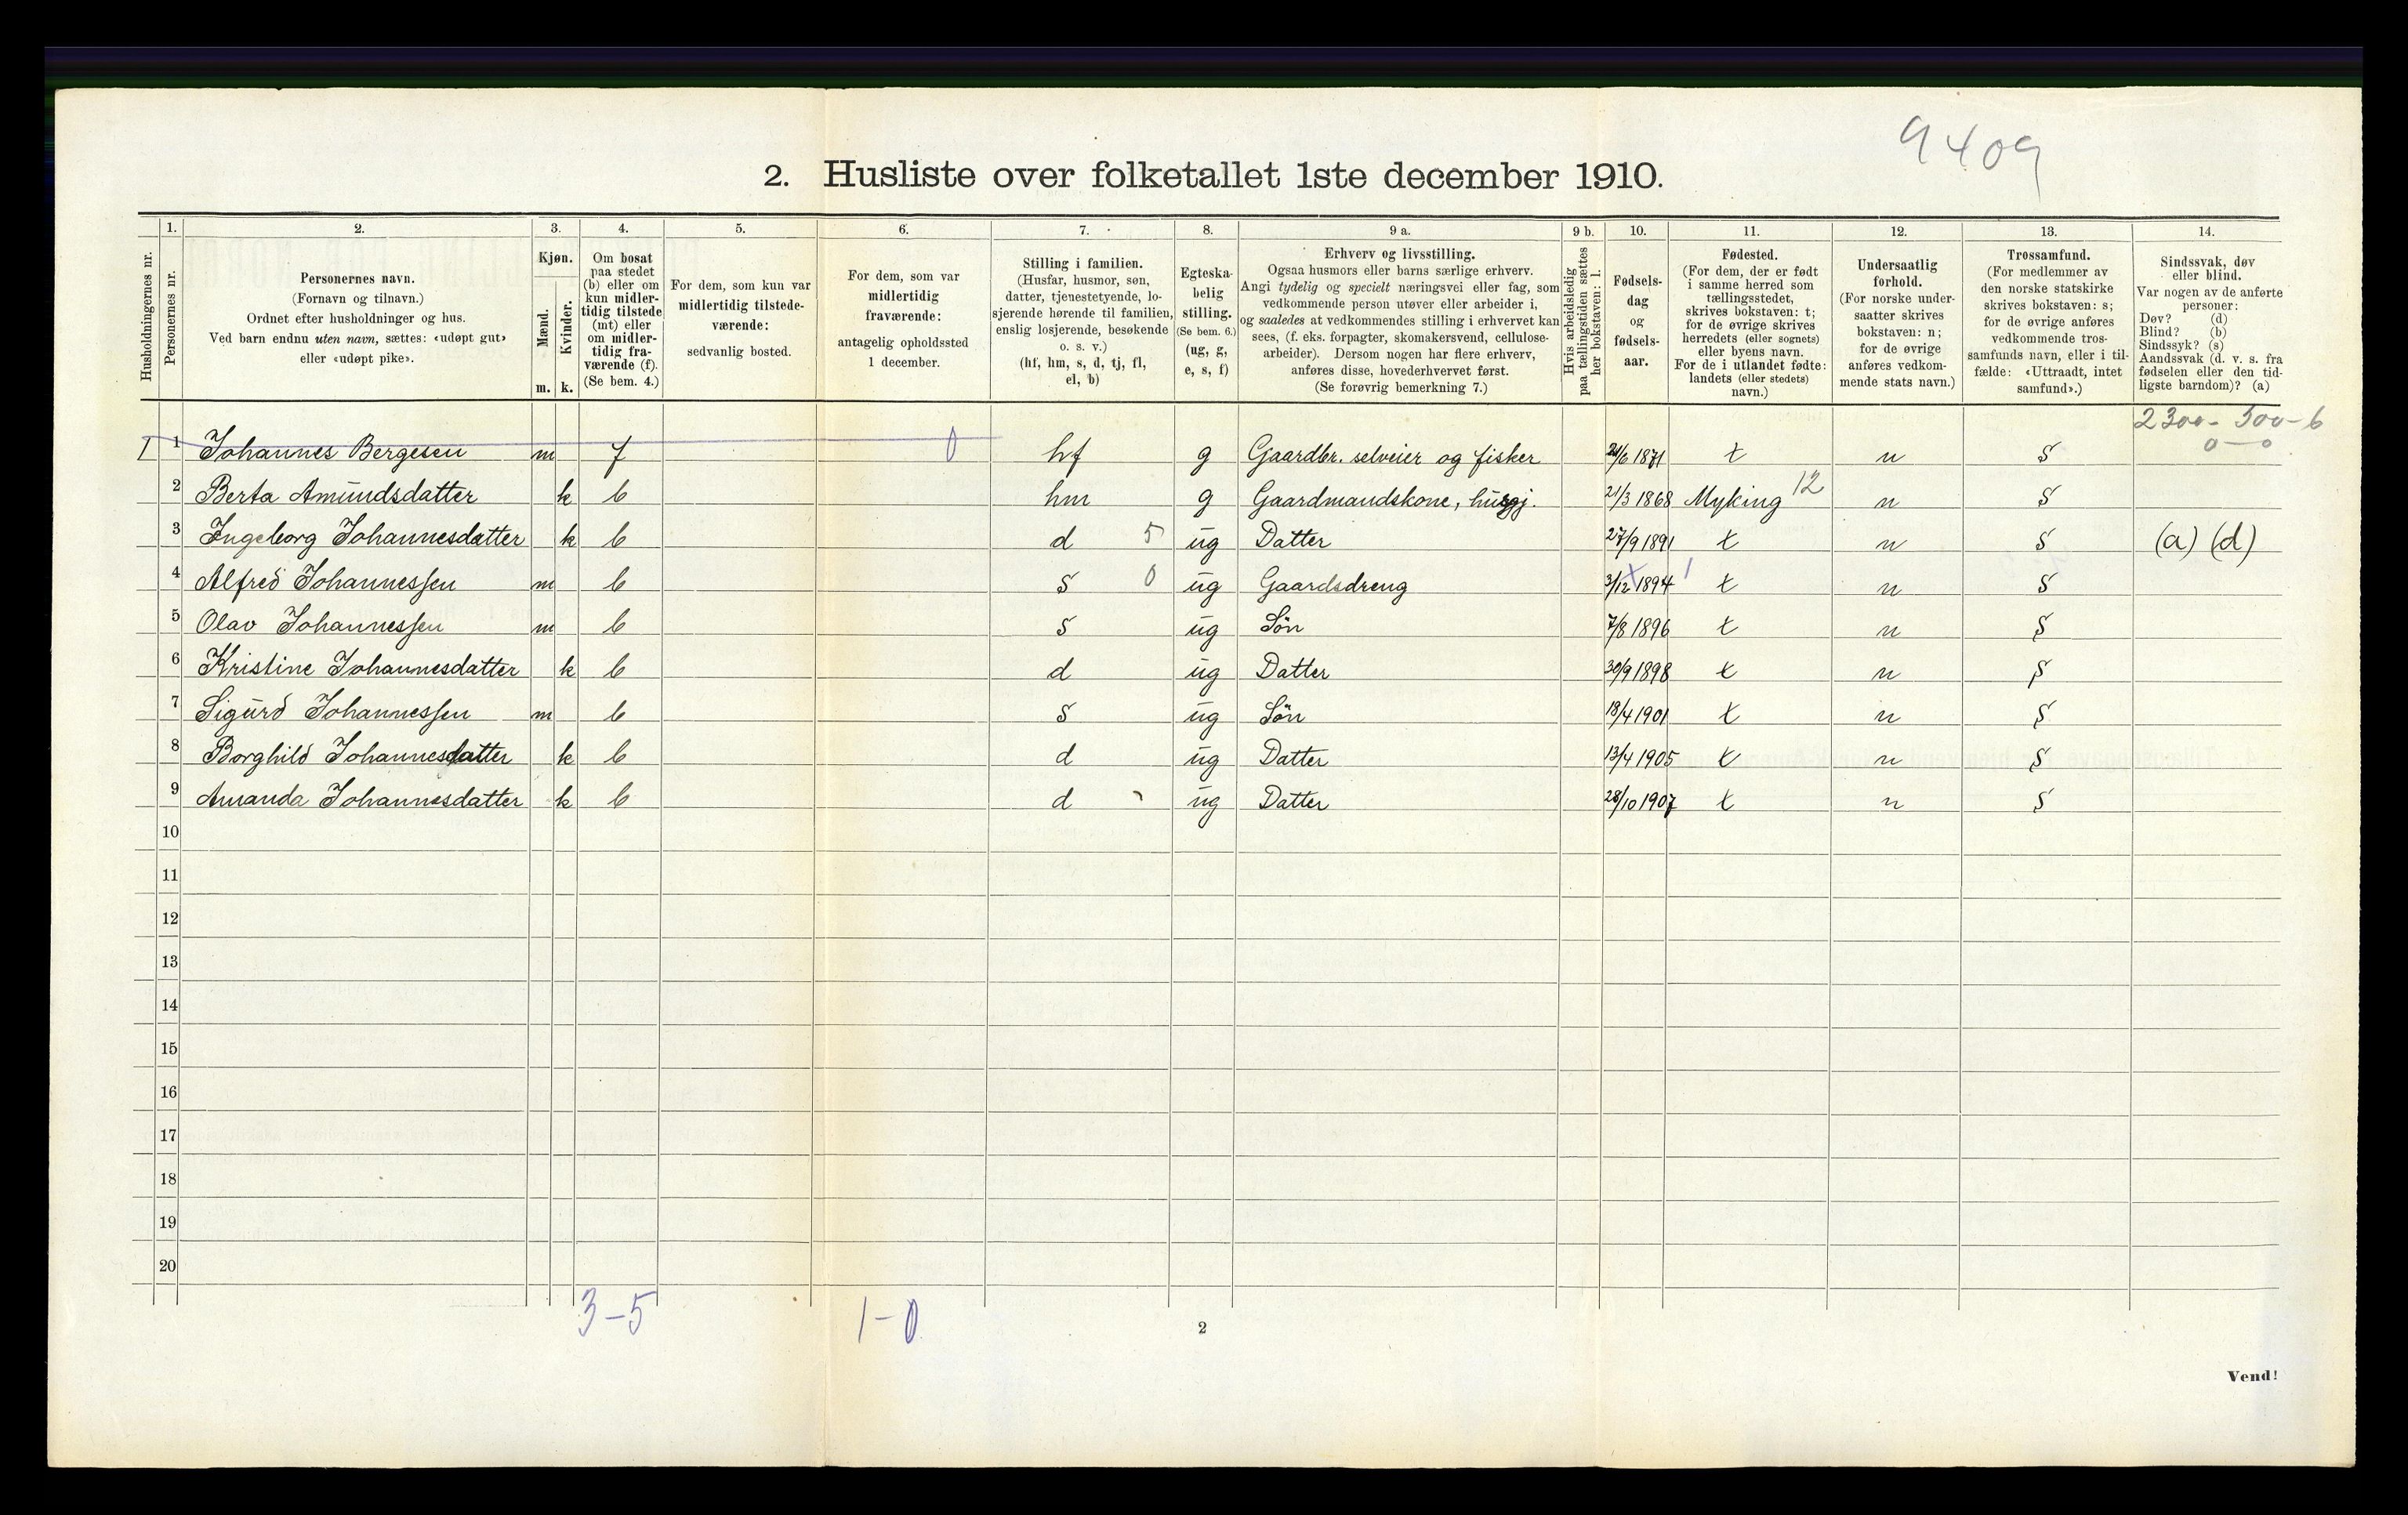 9409
2. Husliste over folketallet 1ste december 1910.
Husholdningernes nr.
1. Personernes nr.
2. Personernes navn.
(Fornavn og tilnavn.)
Ordnet efter husholdninger og hus.
Ved barn endnu uten navn, sættes: «udøpt gut»
eller «udøpt pike».
3. Kjøn.
Mænd. m.
Kvinder. k.
4. Om bosat
paa stedet
(b) eller om
kun midler-
tidig tilstede
(mt) eller
om midler-
tidig fra-
værende (f).
(Se bem. 4.)
5. For dem, som kun var
midlertidig tilstede-
værende:
sedvanlig bosted.
6. For dem, som var
midlertidig
fraværende:
antagelig opholdssted
1 december.
7. Stilling i familien.
(Husfar, husmor, søn,
datter, tjenestetyende, lo-
sjerende hørende til familien,
enslig losjerende, besøkende
o. s. v.)
(hf, hm, s, d, tj, fl,
el, b)
8. Egteska-
belig
stilling.
(Se bem. 6.)
(ug, g,
e, s, f)
9 a. Erhverv og livsstilling.
Ogsaa husmors eller barns særlige erhverv.
Angi tydelig og specielt næringsvei eller fag, som
vedkommende person utøver eller arbeider i,
og saaledes at vedkommendes stilling i erhvervet kan
sees, (f. eks. forpagter, skomakersvend, cellulose-
arbeider). Dersom nogen har flere erhverv,
anføres disse, hovederhvervet først.
(Se forøvrig bemerkning 7.)
9 b. Hvis arbeidsledig
paa tællingstiden sættes
her bokstaven: l.
10. Fødsels-
dag
og
fødsels-
aar.
11. Fødested.
(For dem, der er født
i samme herred som
tællingsstedet,
skrives bokstaven: t;
for de øvrige skrives
herredets (eller sognets)
eller byens navn.
For de i utlandet fødte:
landets (eller stedets)
navn.)
12. Undersaatlig
forhold.
(For norske under-
saatter skrives
bokstaven: n;
for de øvrige
anføres vedkom-
mende stats navn.)
13. Trossamfund.
(For medlemmer av
den norske statskirke
skrives bokstaven: s;
for de øvrige anføres
vedkommende tros-
samfunds navn, eller i til-
fælde: «Uttraadt, intet
samfund».)
14. Sindssvak, døv
eller blind.
Var nogen av de anførte
personer:
Døv? (d)
Blind? (b)
Sindssyk? (s)
Aandssvak (d. v. s. fra
fødselen eller den tid-
ligste barndom)? (a)
2300- 500-6
0-0
1 1 Johannes Bergesen m f 0 hf g Gaardbr. selveier og fisker 21/6 1871 t n S
2 Berta Amundsdatter k b hm g Gaardmandskone, husgj. 21/3 1868 Myking 12 n S
3 Ingeborg Johannesdatter k b d 5 ug Datter 27/9 1891 t n S (a) (d)
4 Alfred Johannessen m b S 0 ug Gaardsdreng 3/12 1894 t n S
5 Olav Johannessen m b S ug Sön 7/8 1896 t n S
6 Kristine Johannesdatter k b d ug Datter 30/9 1898 t n S
7 Sigurd Johannessen m b S ug Sön 18/4 1901 t n S
8 Borghild Johannesdatter k b d ug Datter 13/4 1905 t n S
9 Amanda Johannesdatter k b d ug Datter 28/10 1907 t n S
10
11
12
13
14
15
16
17
18
19
20
3-5 1-0
2
Vend!